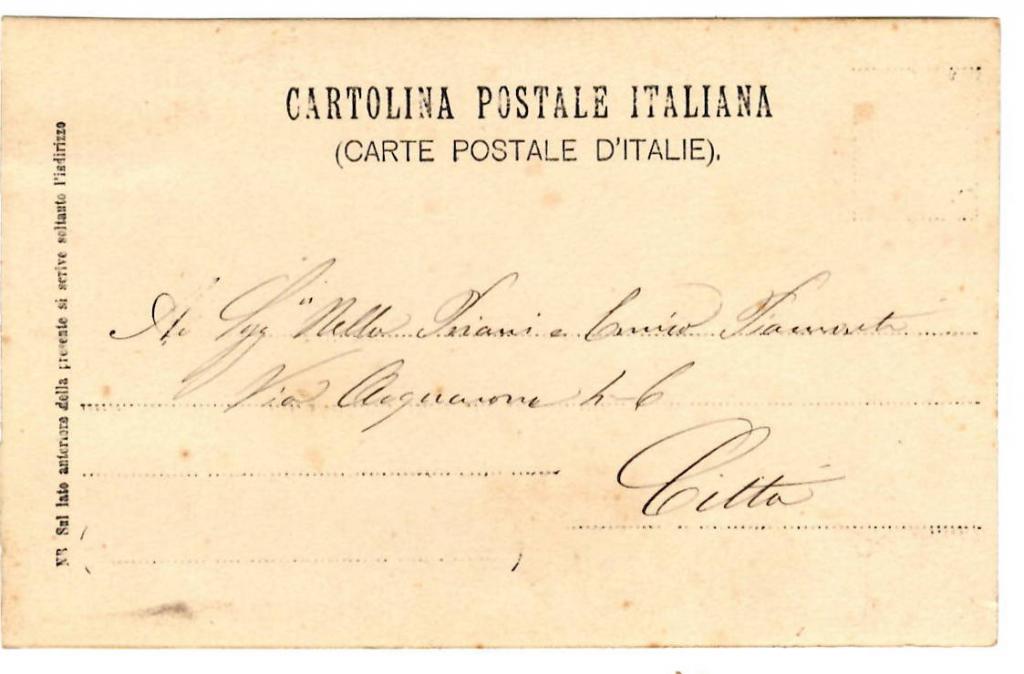 CARTOLINA POSTALE ITALIANA
(CARTE POSTALE D'ITALIE).
NB Sul lato anteriore della presente si scrive soltanto l'indirizzo
Nella e Enrico
Via 4-6
Città